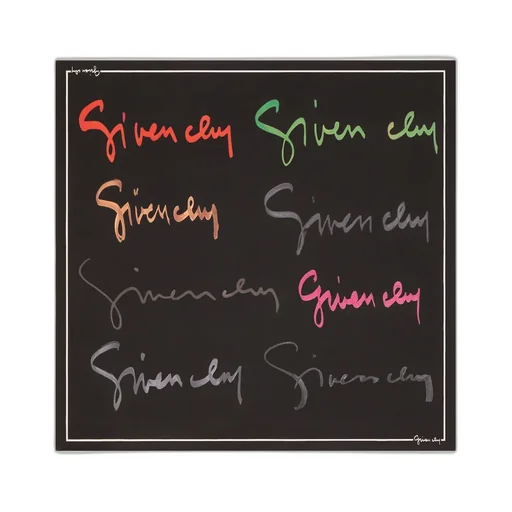 Givenchy
Givenchy Givenchy
Givenchy Givenchy
Givenchy Givenchy
Givenchy Givenchy
Givenchy